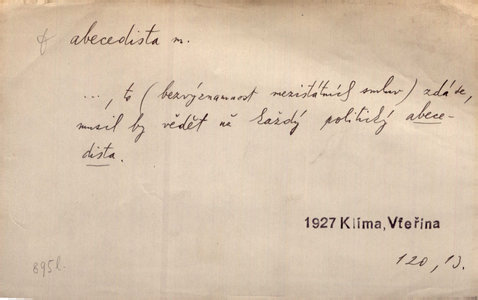 abecedista m.
..., to (bezvýznamnost mezistátních smluv) zdá se,
musil by vědět už každý politický abece-
dista.
1927 Klíma, Vteřina
120, 13.
895 l.